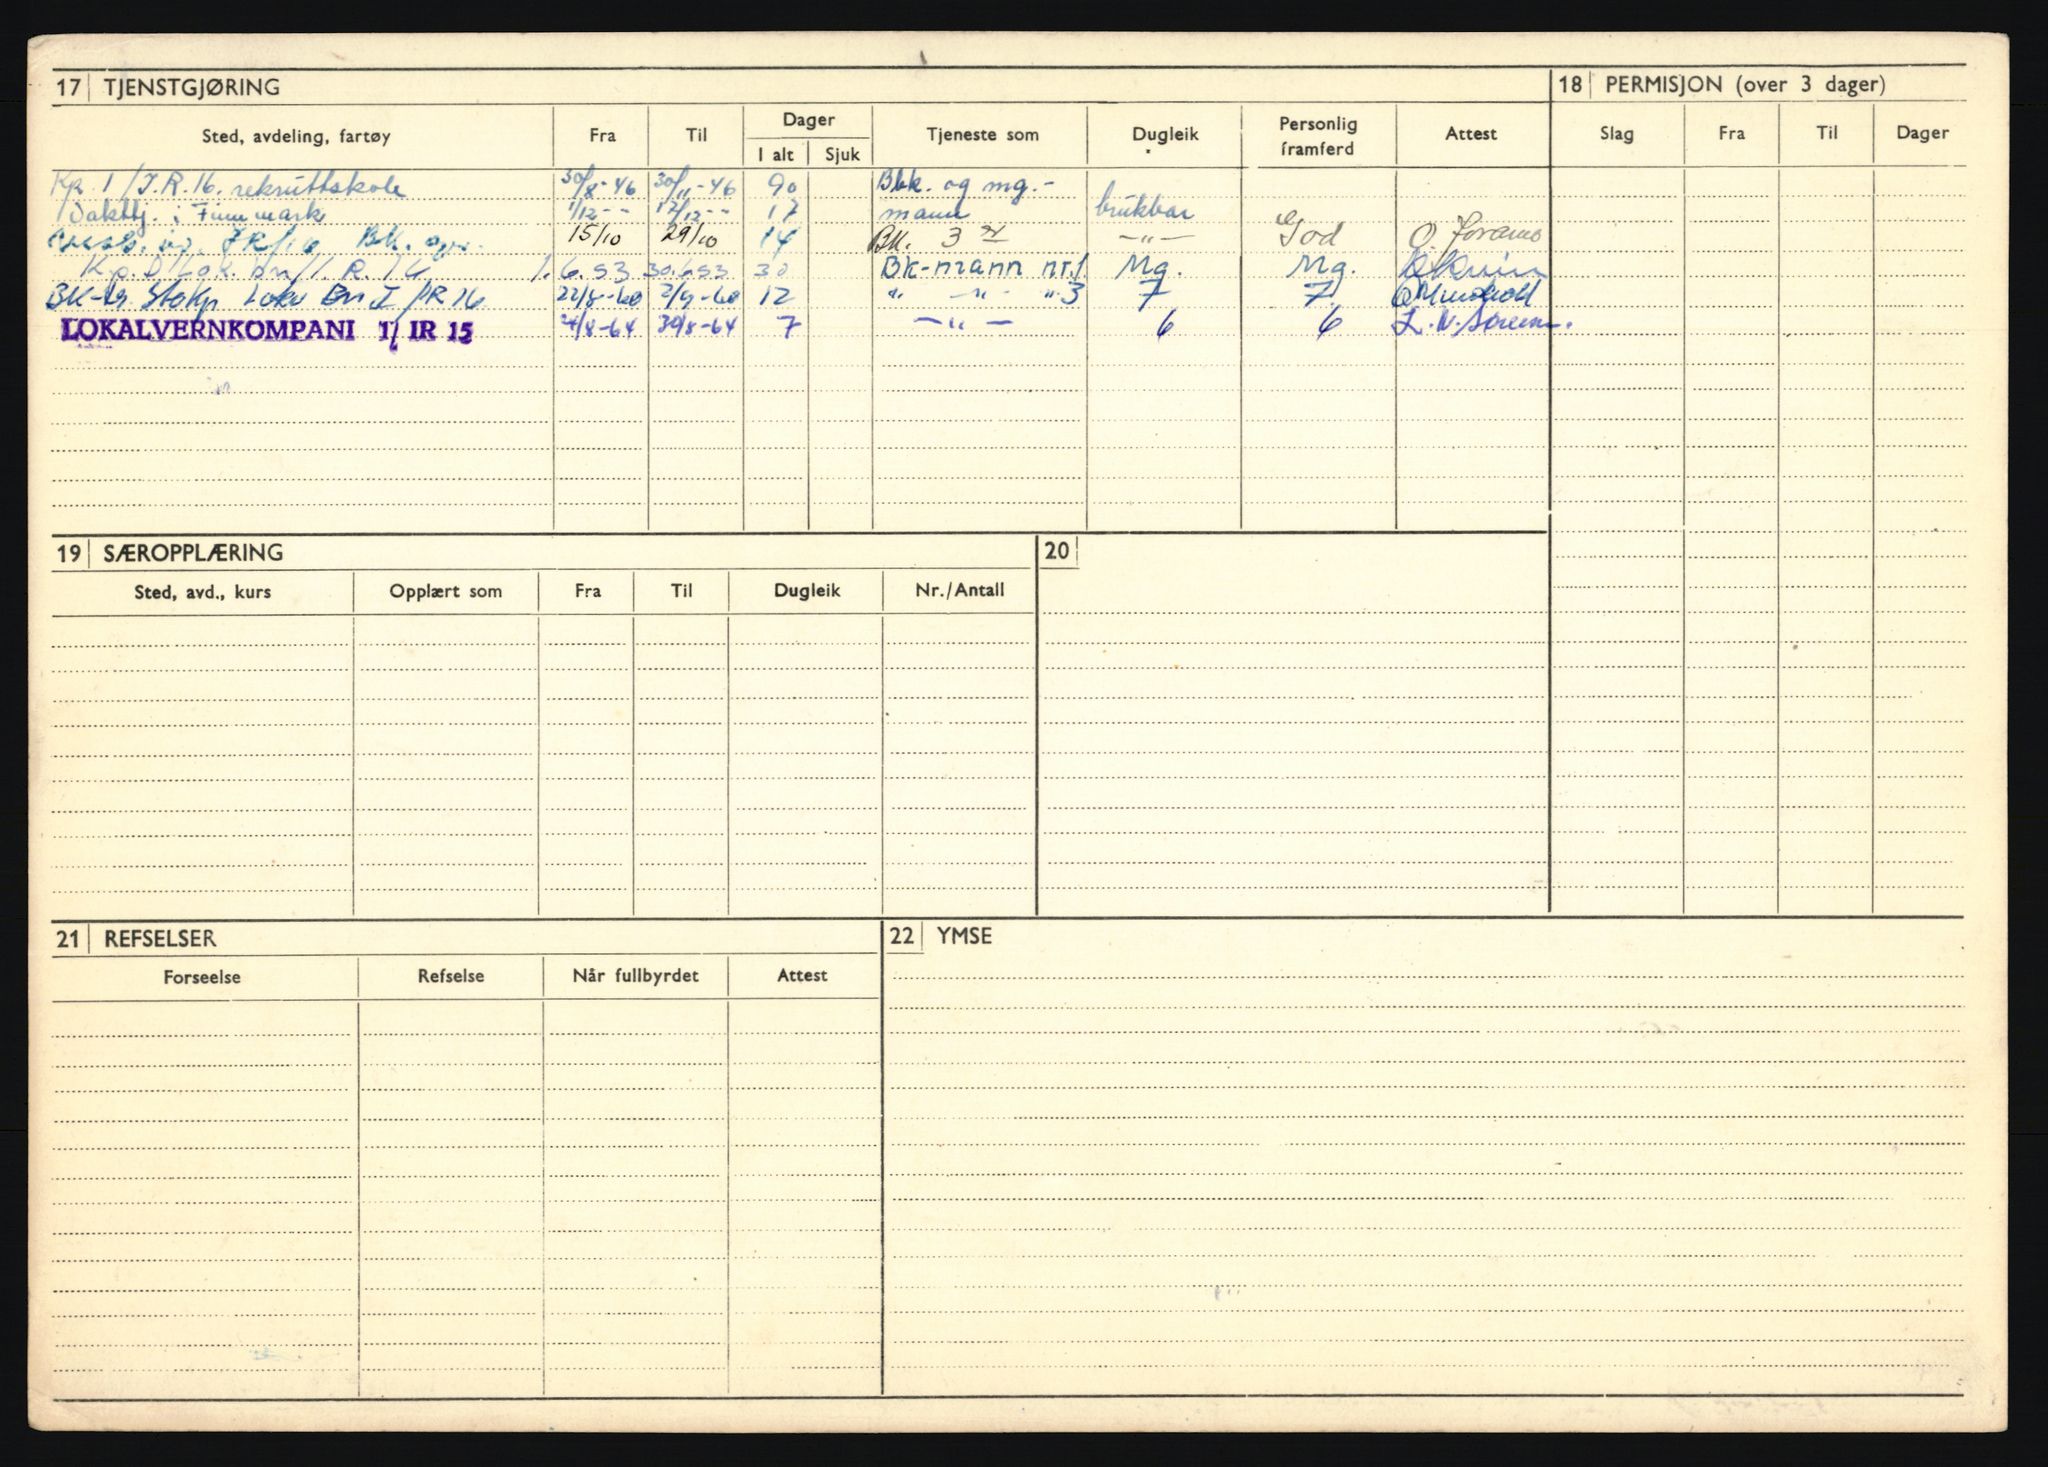 17 TJENSTGJØRING
18 PERMISJON (over 3 dager)
Sted, avdeling, fartøy Fra Til Dager I alt Sjuk Tjeneste som Dugleik Personlig framferd Attest Slag Fra Til Dager
Kp. 1 / I.R. 16. rekruttskole 30/8-46 30/11-46 90 Bbk. og mg.-
i Finnmark 1/12-- 17/12-- 17 mann brukbar
Bk. 15/10 29/10 14 Bk. 3 -"- God
Kp. I.R. 16 1.6.53 30.6.53 30 Bk-mann nr.1 Mg. Mg.
BK- Stokp Lokv Bn I / IR 16 22/8-60 2/9-60 12 " -"- " 3 7 7
LOKALVERNKOMPANI 1/ IR 15 24/8-64 30/8-64 7 -"- 6 6
19 SÆROPPLÆRING
20
Sted, avd., kurs Opplært som Fra Til Dugleik Nr./Antall
21 REFSELSER
22 YMSE
Forseelse Refselse Når fullbyrdet Attest